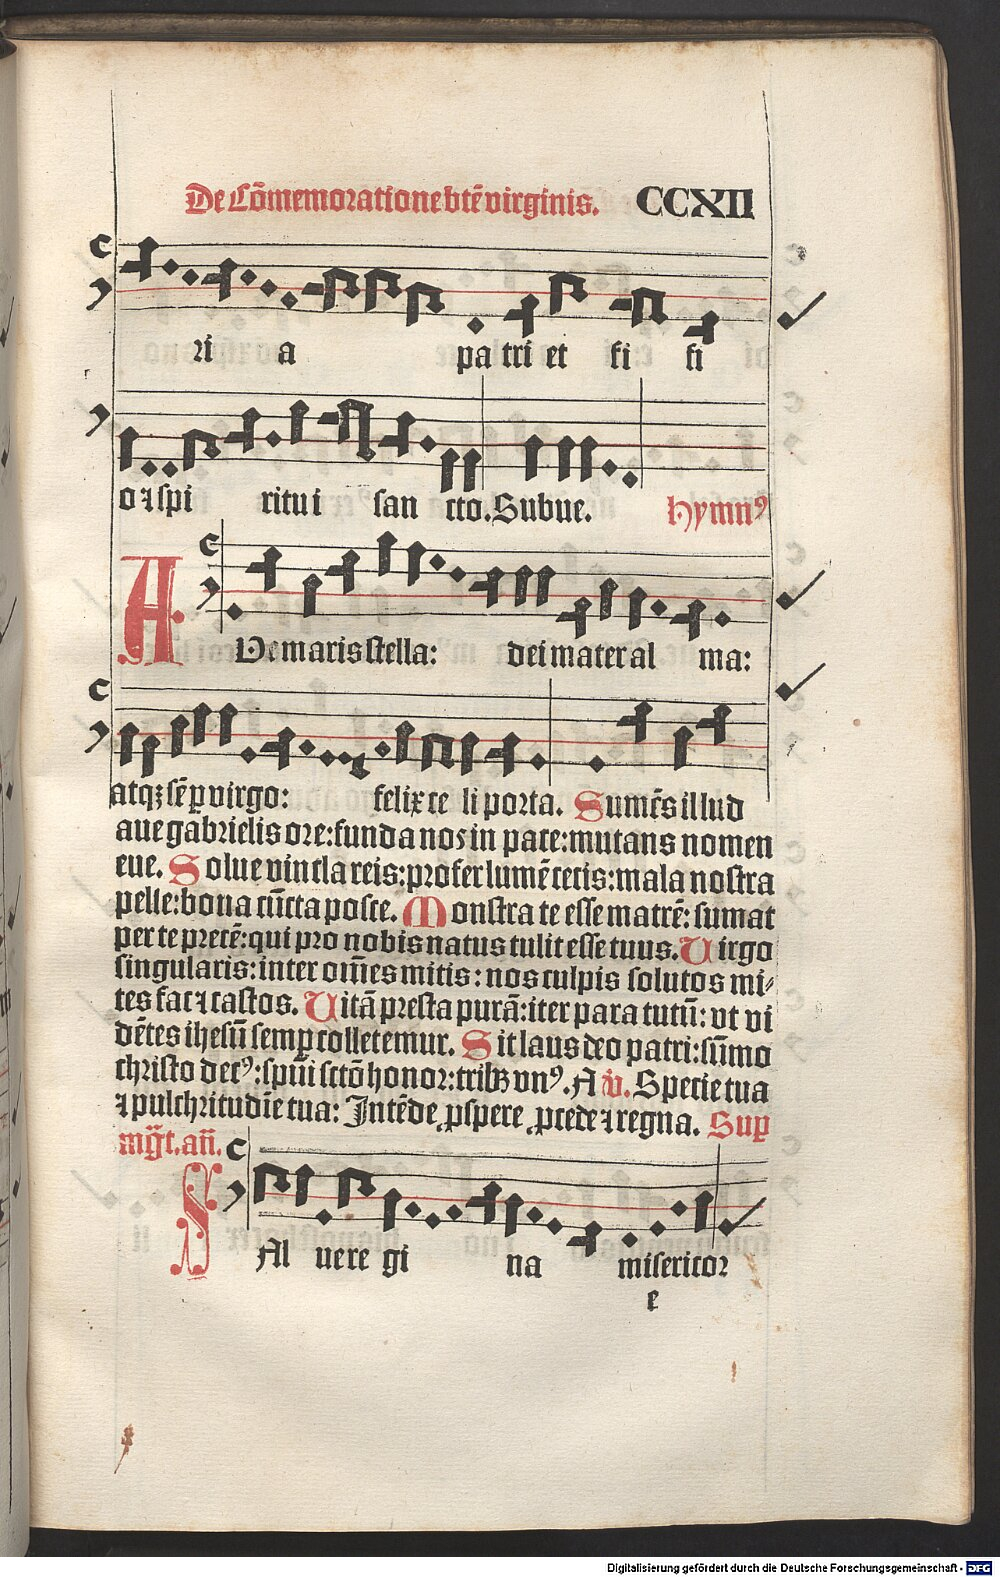 De Cōmemoratione btē virginis. CCXII
ri a pa tri et fi fi
o ⁊ spi ritu i san cto. Subue. Hymnꝰ
AVe maris stella: dei mater al ma:
atqꝫ sēꝑ virgo: felix ce li porta. Sumēs illud
aue gabrielis ore: funda nos in pace: mutans nomen
eue. Solue vincla reis: profer lumē cecis: mala nostra
pelle: bona cūcta posce. Monstra te esse matrē: sumat
per te precē: qui pro nobis natus tulit esse tuus. Virgo
singularis: inter oīnes mitis: nos culpis solutos mi⸗
tes fac ⁊ castos. Vitā presta purā: iter para tutū: vt vi
dētes ihesū semꝑ colletemur. Sit laus deo patri: sūmo
christo decꝰ: spūi sctō honor: tribꝫ vnꝰ. A v̄. Specie tua
⁊ pulchritudīe tua: Intēde ꝓspere ꝓcede ⁊ regna. Suꝑ
mḡt. añ.
SAl ue re gi na misericor
e
Digitalisierung gefördert durch die Deutsche Forschungsgemeinschaft - DFG